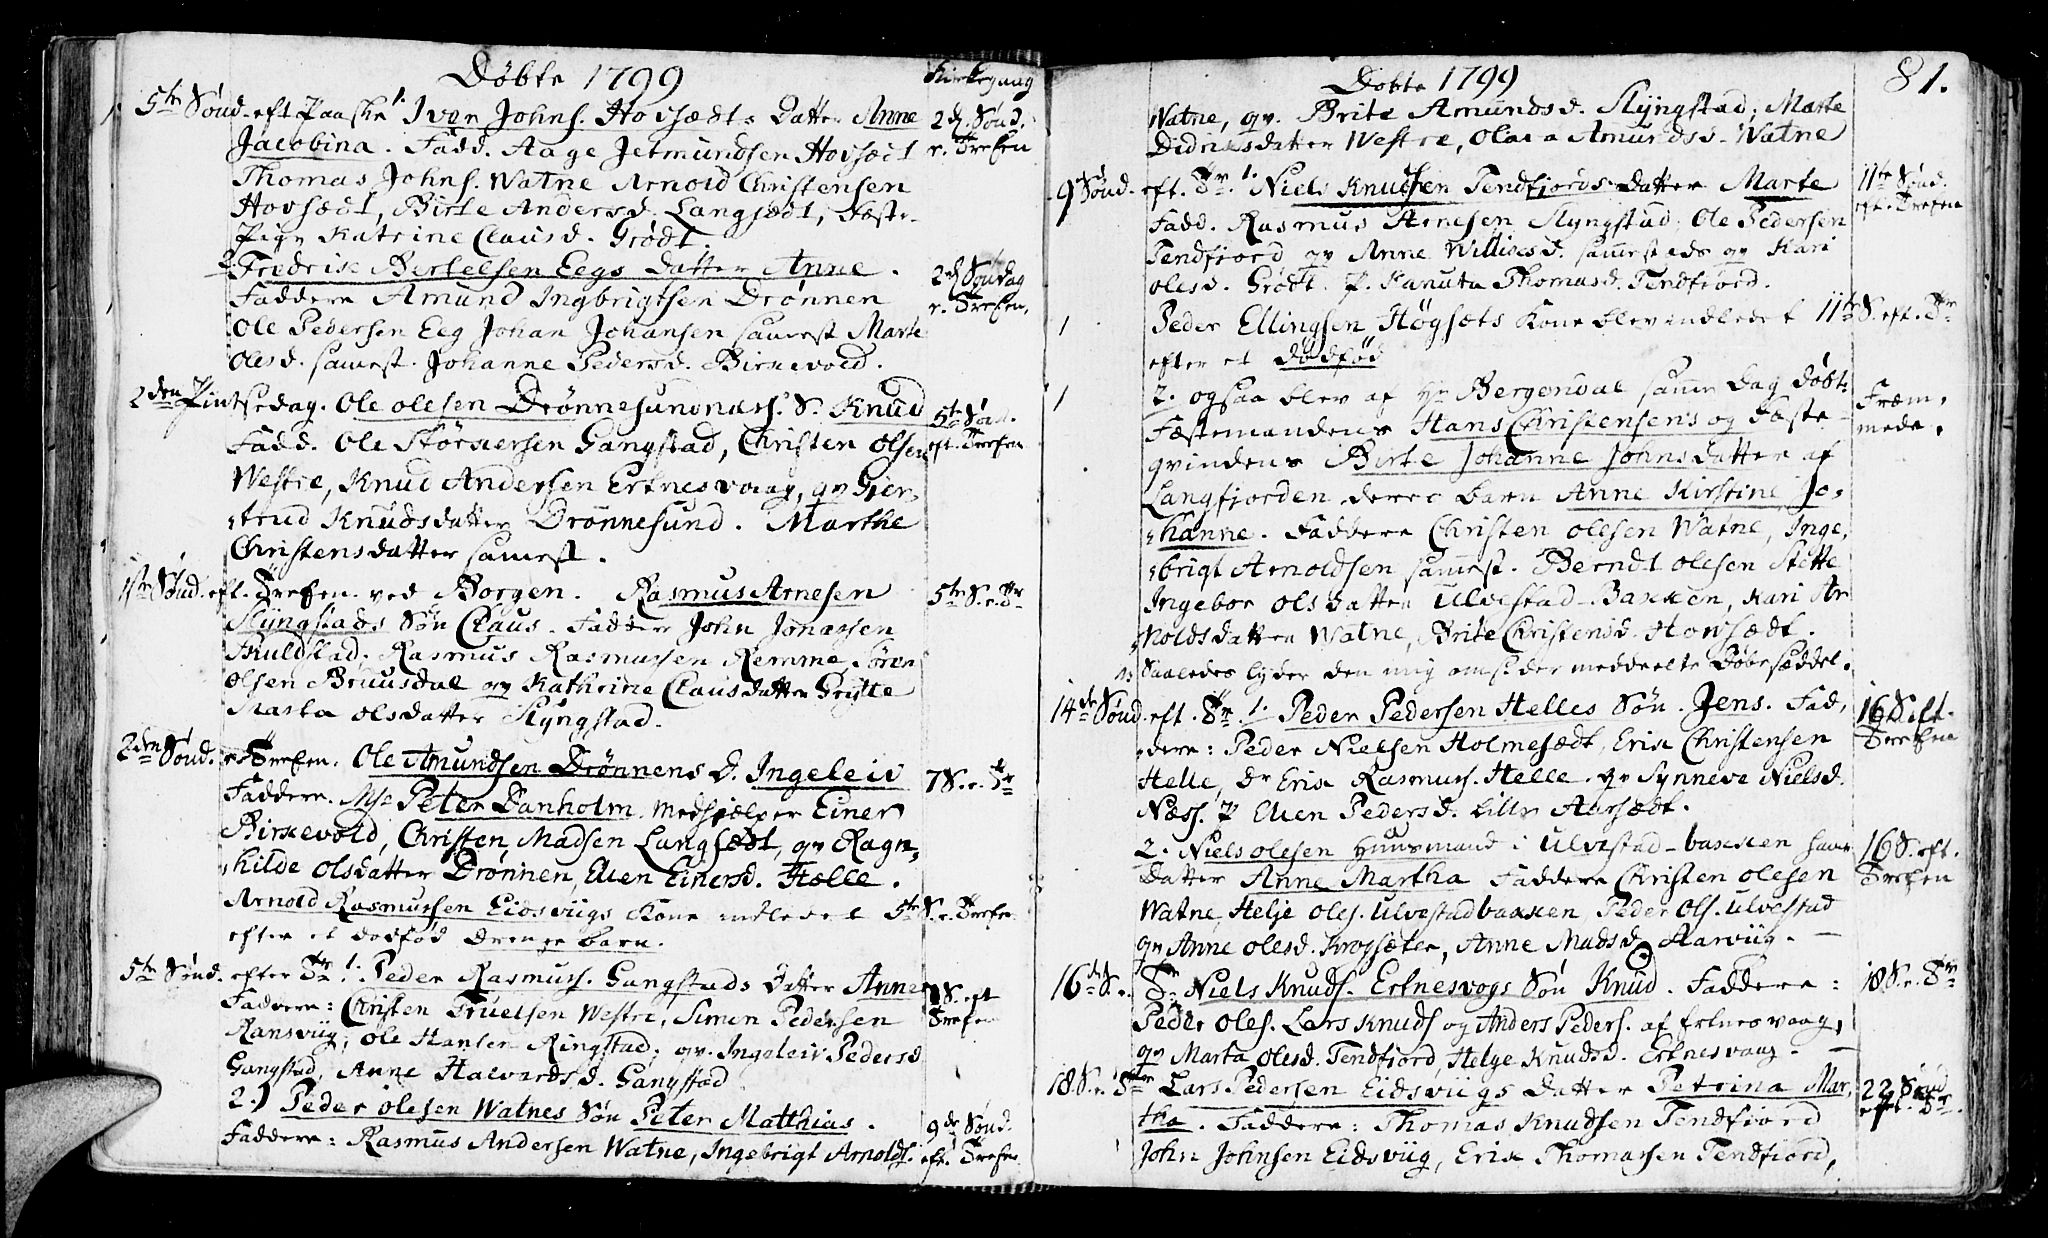 Döbte 1799
Kirkegang
5te Sönd. eft Paaske 1. Iver Johns. Hovsædts Datter Anne
2d. Sönd.
Jacobina. Fadd. Aage Jetmundsen Hovsædt
e. Trefen
Thomas Johns. Watne Arnold Christensen
Hovsædt, Birte Andersd. Langsædt, Fæste-
Pige Katrine Clausd. Grödt.
2 Fredrik Bertelsen Eegs Datter Anne.
2d Söndag
Faddere Amund Ingbrigtsen Drönnen
e. Trefen,
Ole Pedersen Eeg Johan Johansen samest Marte
Olesd. samest. Johanne Pedersd. Birkevold.
2den Pintsedag. Ole Olesen Drönnesunds S. Knud
5te Sönd.
Fadd. Ole Störkersen Gangstad, Christen Olsen
eft. Trefen
Westre, Knud Andersen Erknesvaag, qv Gier-
trud Knudsdatter Drönnesund. Marthe
Christensdatter samest.
1ste Sönd. eft. Trefen. ved Borgen. Rasmus Arnesen
5te S. e. Tr
Slyngstads Sön Claus. Faddere John Jonassen
Skuldstad, Rasmus Rasmussen Remme, Sören
Olsen Bruusdal og Kathrine Clausdatter Grytte
Marta Olsdatter Slyngstad.
2den Sönd. e Trefen. Ole Amundsen Drönnens D. Ingeleiv
7 S. e. Tr
Faddere. Msr Peter Danholm. Medhielper Einer
Birkevold, Christen Madsen Langsædt, qv Ragn-
hilde Olsdatter Drönnen, Elen Einersd. Hælle.
Arnold Rasmussen Eidsviigs Kone indledet 5te S. e. Trefen
efter et dödfød Drenge barn.
5te Sönd. efter Tr 1. Peder Rasmuss. Gangstads Datter Anne
S. eft
Faddere: Christen Truelsen Westre, Simen Pedersen
Trefen
Ransviig, Ole Hansen Ringstad; qv. Ingeleiv Pedersd
Gangstad, Anne Halvardsd. Gangstad
2.) Peder Olesen Watnes Sön Peter Matthias.
9de Sönd.
Faddere: Rasmus Andersen Watne, Ingebrigt Arnolds.
eft. Trefen
Döbte 1799
81.
Watne, qv. Brite Amundsd. Slyngstad, Marte
Didriksdatter Westre, Olava Amundsd. Watne
9de Sönd. eft. Tr. 1. Niels Knudsen Tendfjords Datter Marte
11te Sönd.
Fadd. Rasmus Arnesen Slyngstad, Ole Pedersen
eft. Trefen
Tendfiord qv Anne Willisd. sammesteds og Kari
Olesd. Grödt. P. Kanuta Thomasd. Tendfiord.
Peder Ellingsen Högsets Kone blev indledet 11te S. eft. Tr
efter et dödfød
2. ogsaa blev af Hr Bergendal samme Dag döbt
Fæstemandens Hans Christensens og Fæste-
Fræm-
mede.
qvindens Birte Johanne Johnsdatter af
Langfjorden deres barn Anne Kirstine Jo-
hanne. Faddere Christen Olesen Watne, Inge-
brigt Arnoldsen samest. Berndt Olesen Stette
Ingebor Olsdatter Ulvestad-Bakken, Kari Ar
noldsdatter Watne, Brite Christensd. Hovsædt.
Saaledes lyder den mig omsider meddeelte Döbeseddel.
14de Sönd. eft. Tr. 1. Peder Pedersen Helles Sön. Jens. Fad-
16 S. eft.
dere: Peder Nielsen Holmesædt, Erik Christensen
Trefen
Helle, Dr Erik Rasmuss. Helle. qv Synneve Nielsd.
Næss. P Elen Pedersd. Lille Aarsædt.
2. Niels Olesen Huusmand i Ulvestad-bakken hans
16 S. eft.
Datter Anne Martha Faddere Christen Olesen
Trefen
Watne, Helje Oles. Ulvestadbakken, Peder Ols. Ulvestad
qv Anne Olesd. Krogsæter, Anne Madsd. Aarviig.
16de S. e. Tr Niels Knuds. Erknesvogs Sön Knud. Faddere:
18 S. e. Tr
Peder Oles. Lars Knuds og Anders Peders. af Erknesvaag,
qv Marta Olesd. Tendfiord, Helge Knudsd. Erknesvaag.
18 S. e. Tr Lars Pedersen Eidsviigs Datter Petrina Mar-
22 Sönd
tha. Faddere: Thomas Knudsen Tendfiord
efter Tr.
John Johnsen Eidsviig, Erik Thomassen Tendfiord,